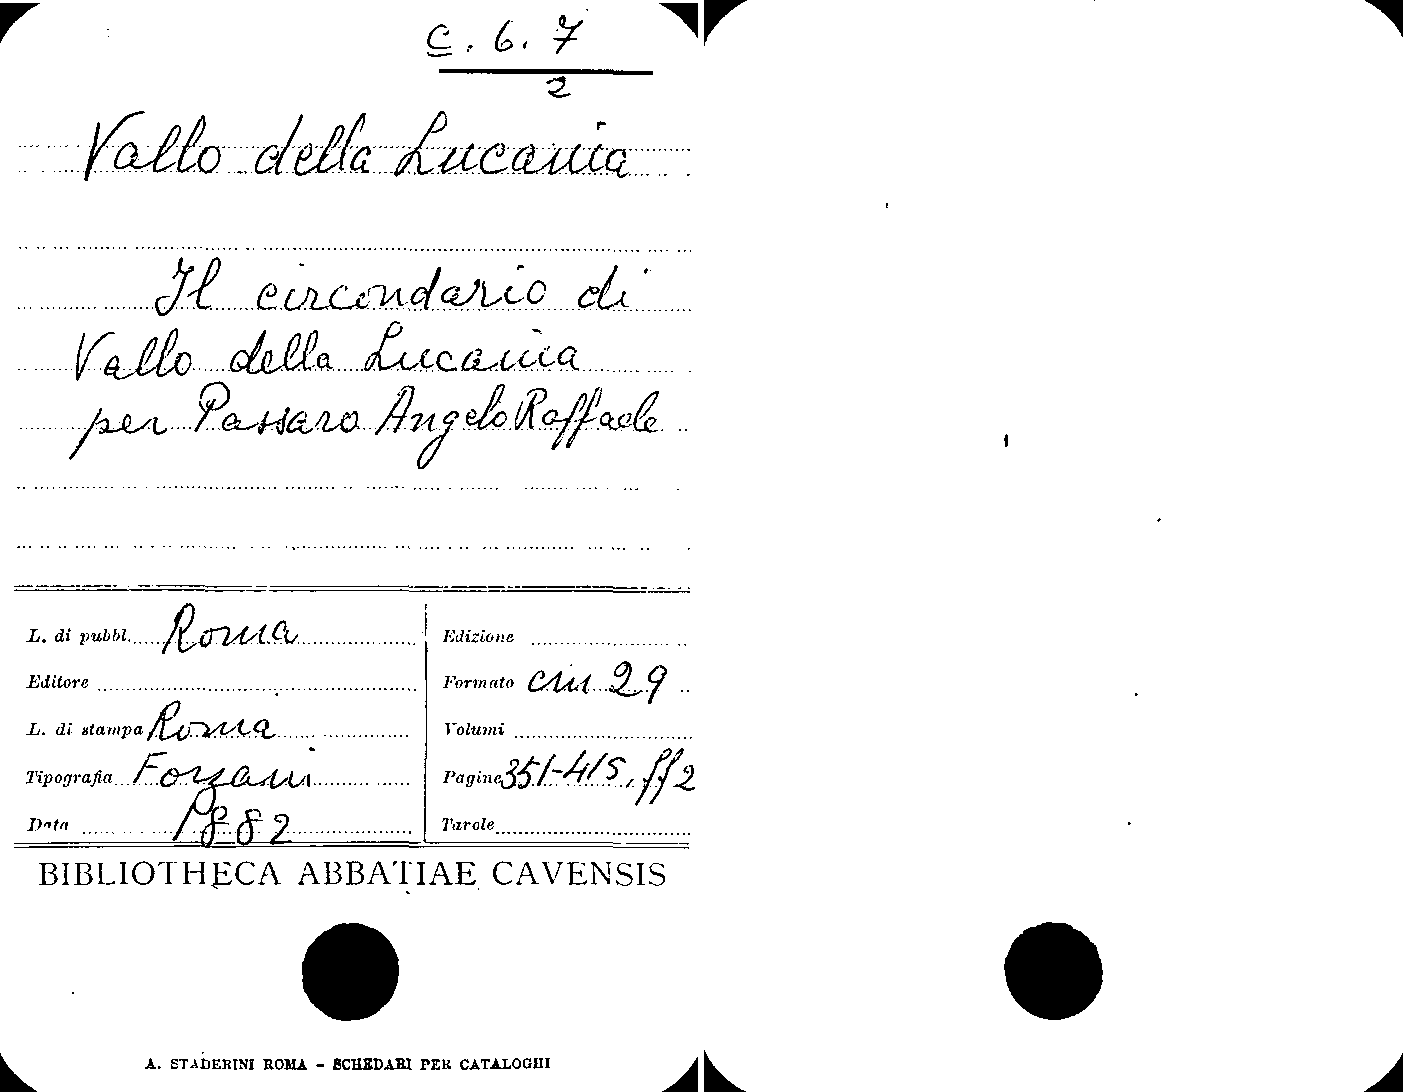 C. 6. 7
2
Vallo della Lucania
Il circondario di
Vallo della Lucania
per Passaro Angelo Raffaele
L. di pubbl. Roma
Editore
L. di stampa Roma
Tipografia Forzani
Data 1882
Edizione
Formato cm 29
Volumi
Pagine 351-415, ff 2
Tavole
BIBLIOTHECA ABBATIAE CAVENSIS
A. STADERINI ROMA - SCHEDARI PER CATALOGHI